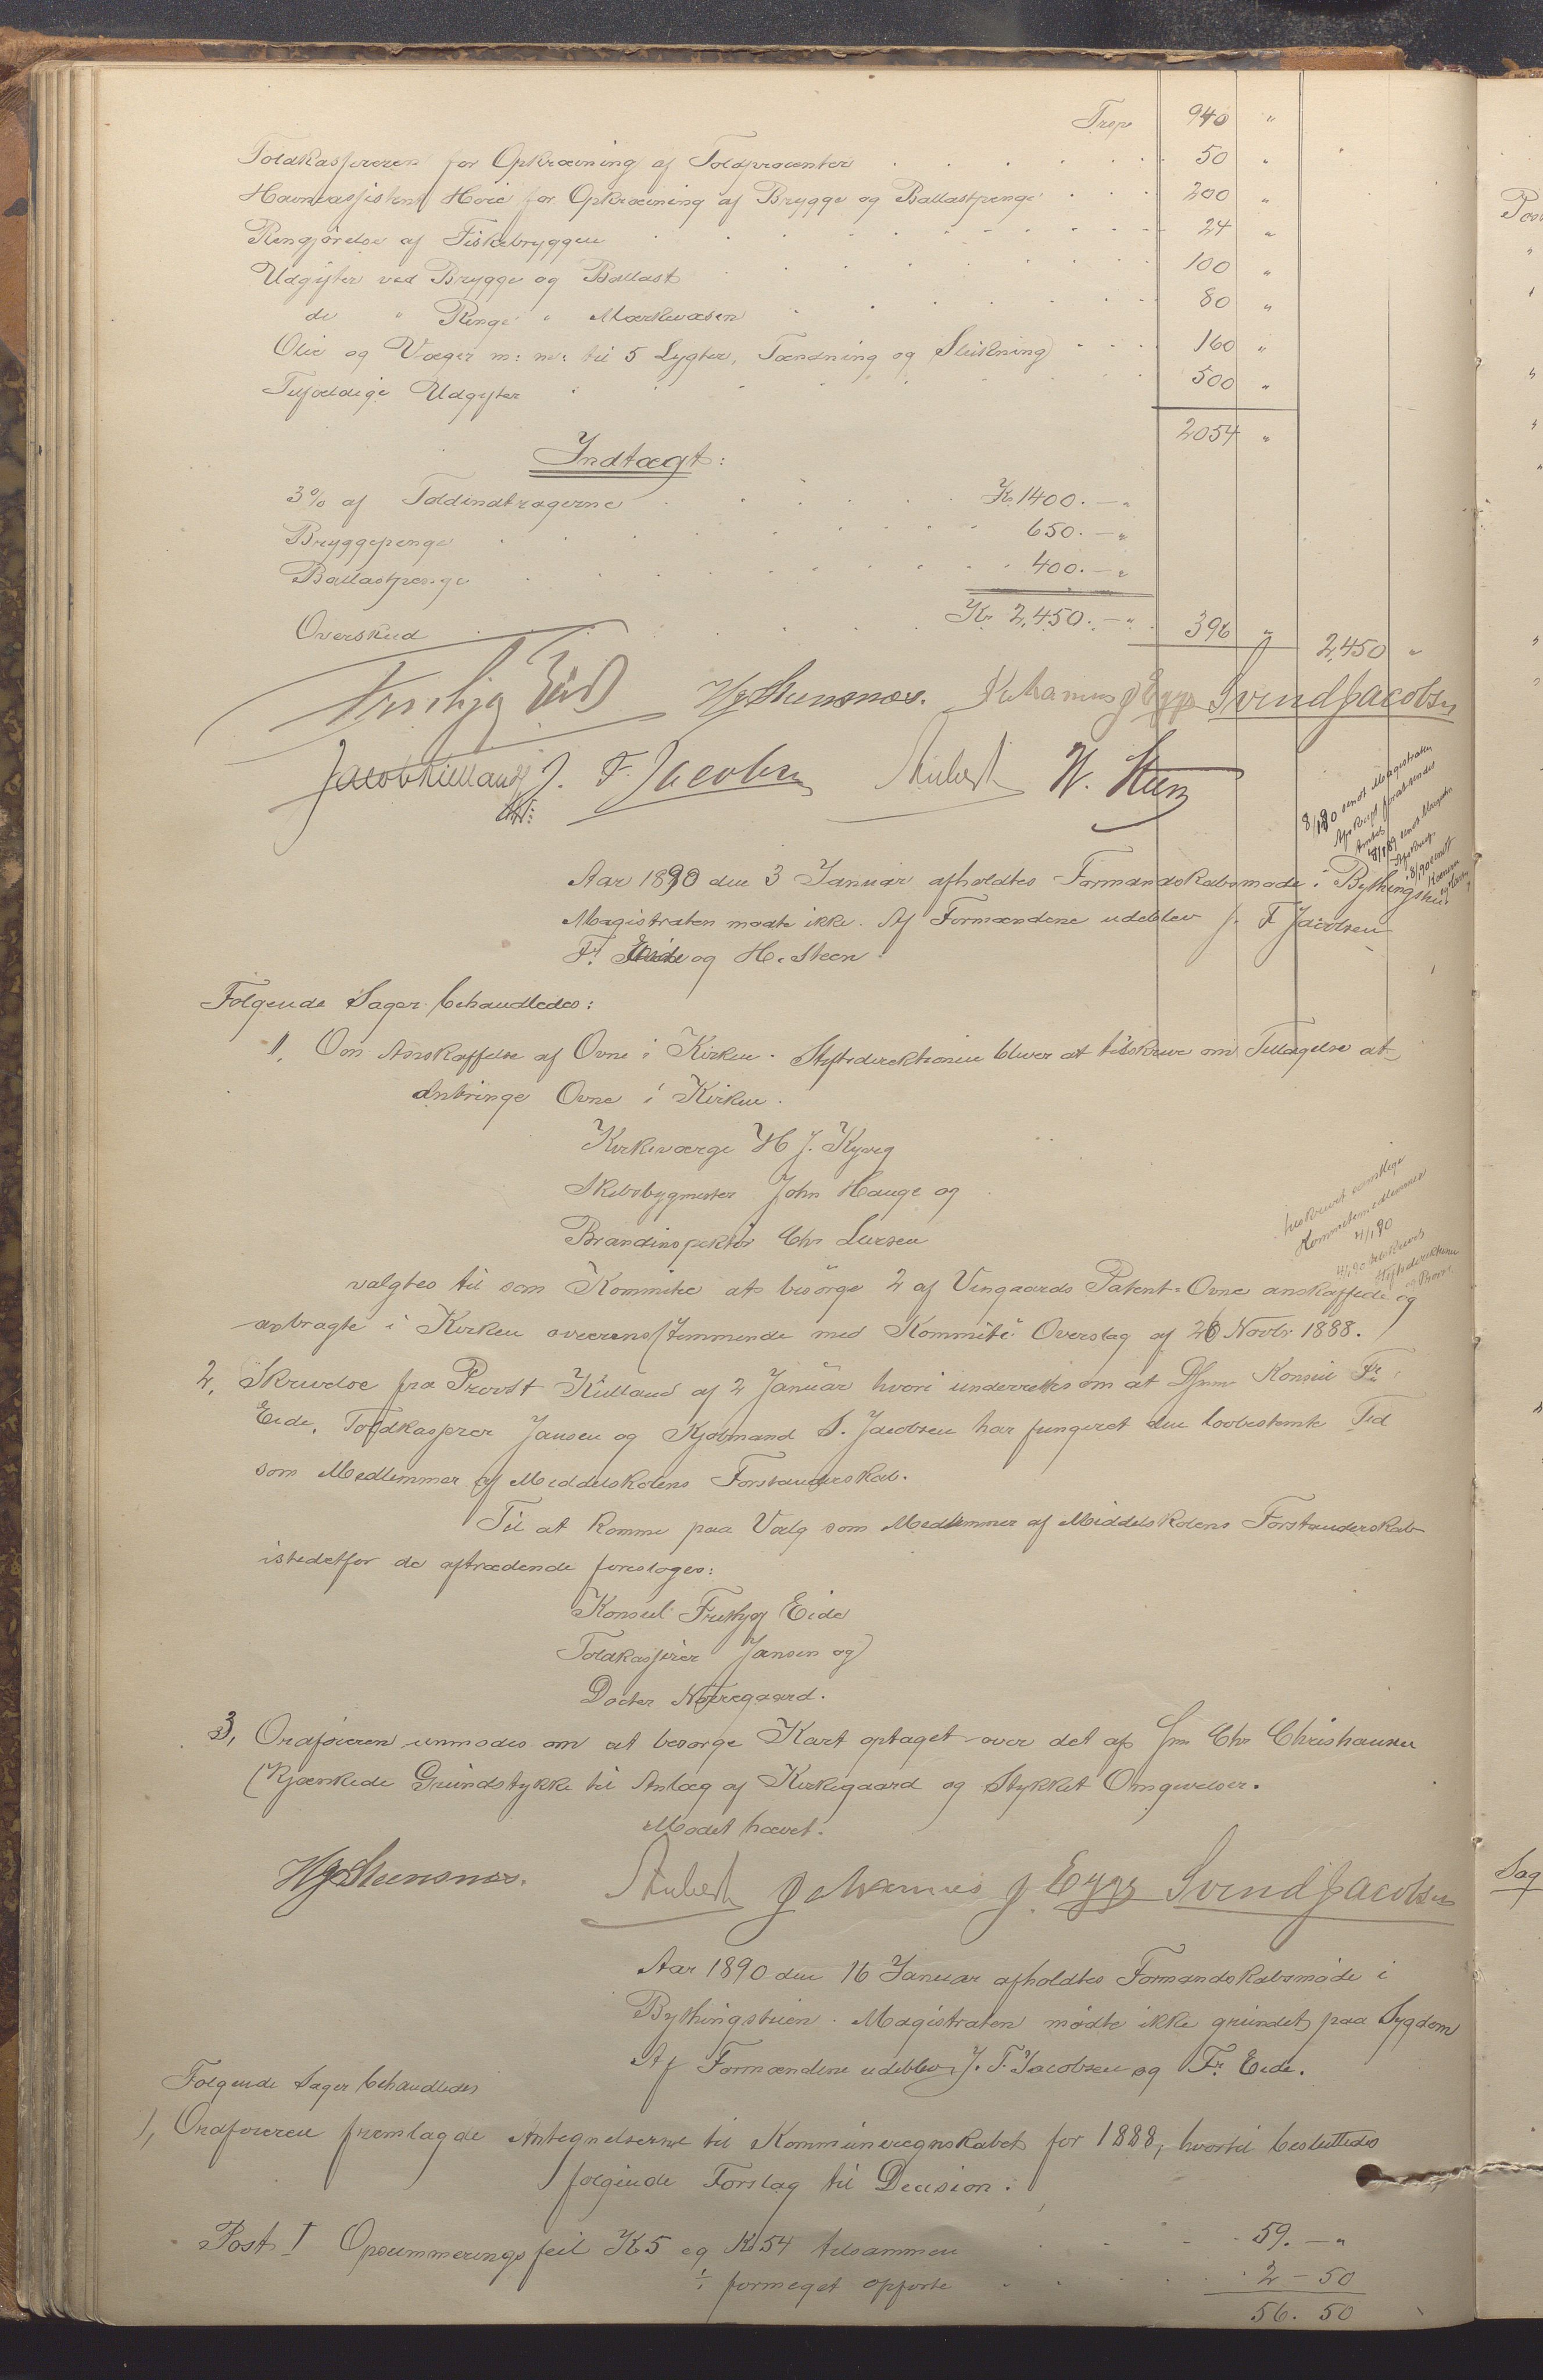 Trsp. 940 "
Toldkasjereren for Opkrævning af Toldprocenter 50 "
Havneassistent Høie for Opkrævning af Brygge og Ballastpenge 200 "
Rengjørelse af Fiskebryggen 24 "
Udgifter ved Brygge og Ballast 100 "
do " Ringe " Mærkevæsen 80 "
Olie og Væger m: m: til 5 Lygter, Tændning og Slukning 160 "
Tilfældige Udgifter 500 "
2054 "
Indtægt:
3% af Toldindtragerne Kr 1400. — "
Bryggepenge 650. — "
Ballastpenge 400. — "
Kr 2,450. — "
Overskud 396 " 2,450 "
Frithjof Eide HJ Steensnæs. Johannes J Egge Svend Jacobsen
Jacob Kielland J. F. Jacobsen Aubert H. Steen
8/1 90 sendt Magistraten
Afskrift
Aar 1890 den 3 Januar afholdtes Formandskabsmøde i Bythingstuen
Magistraten mødte ikke. Af Formændene udeblev J. F Jacobsen
Fr. Eide og H. Steen.
Følgende Sager behandledes:
1. Om Anskaffelse af Ovne i Kirken. Stiftsdirektionen bliver at tilskrive om Tilladelse at
anbringe Ovne i Kirken.
Kirkeværge H J. Kyvig
Skibsbygmester John Hauge og
Brandinspektør Chr Larsen
tilskrevet samtlige
Kommitemedlemmer
4/1 90
4/1 90 tilskrevet
Stiftsdirektionen
valgtes til som Kommite at besørge 2 af Vingaards Patent-Ovne anskaffede og
anbragte i Kirken overensstemmende med Kommite Overslag af 26 Novbr 1888.
2. Skrivelse fra Provst Kielland af 2 Januar hvori underrettes om at DHrr Konsul Fr.
Eide, Toldkasjerer Jansen og Kjøbmand S. Jacobsen har fungeret den lovbestemte Tid
som Medlemmer af Middelskolens Forstanderskab.
Til at komme paa Valg som Medlemmer af Middelskolens Forstanderskab
istedetfor de aftrædende foresloges:
Konsul Frithjof Eide
Toldkasjerer Jansen og
Docter Nørregaard.
3, Ordføreren anmodes om at besørge Kart optaget over det af Hrr Chr Christiansen
skjænkede Grundstykke til Anlæg af Kirkegaard og Stykket Omgivelser.
Mødet hævet.
HJ Steensnæs. Aubert Johannes J. Egge Svend Jacobsen
Aar 1890 den 16 Januar afholdtes Formandskabsmøde i
Bythingstuen. Magistraten mødte ikke grundet paa Sygdom
Af Formændene udeblev J. F. Jacobsen og Fr. Eide.
Følgende Sager behandledes
1, Ordføreren fremlagde Antegnelserne til Kommuneregnskabet for 1888, hvortil besluttedes
følgende Forslag til Decision:
Post 1 Opsummerings feil K 5 og Kr 54 tilsammen 59. — "
÷ formeget opførte 2 - 50
56. 50